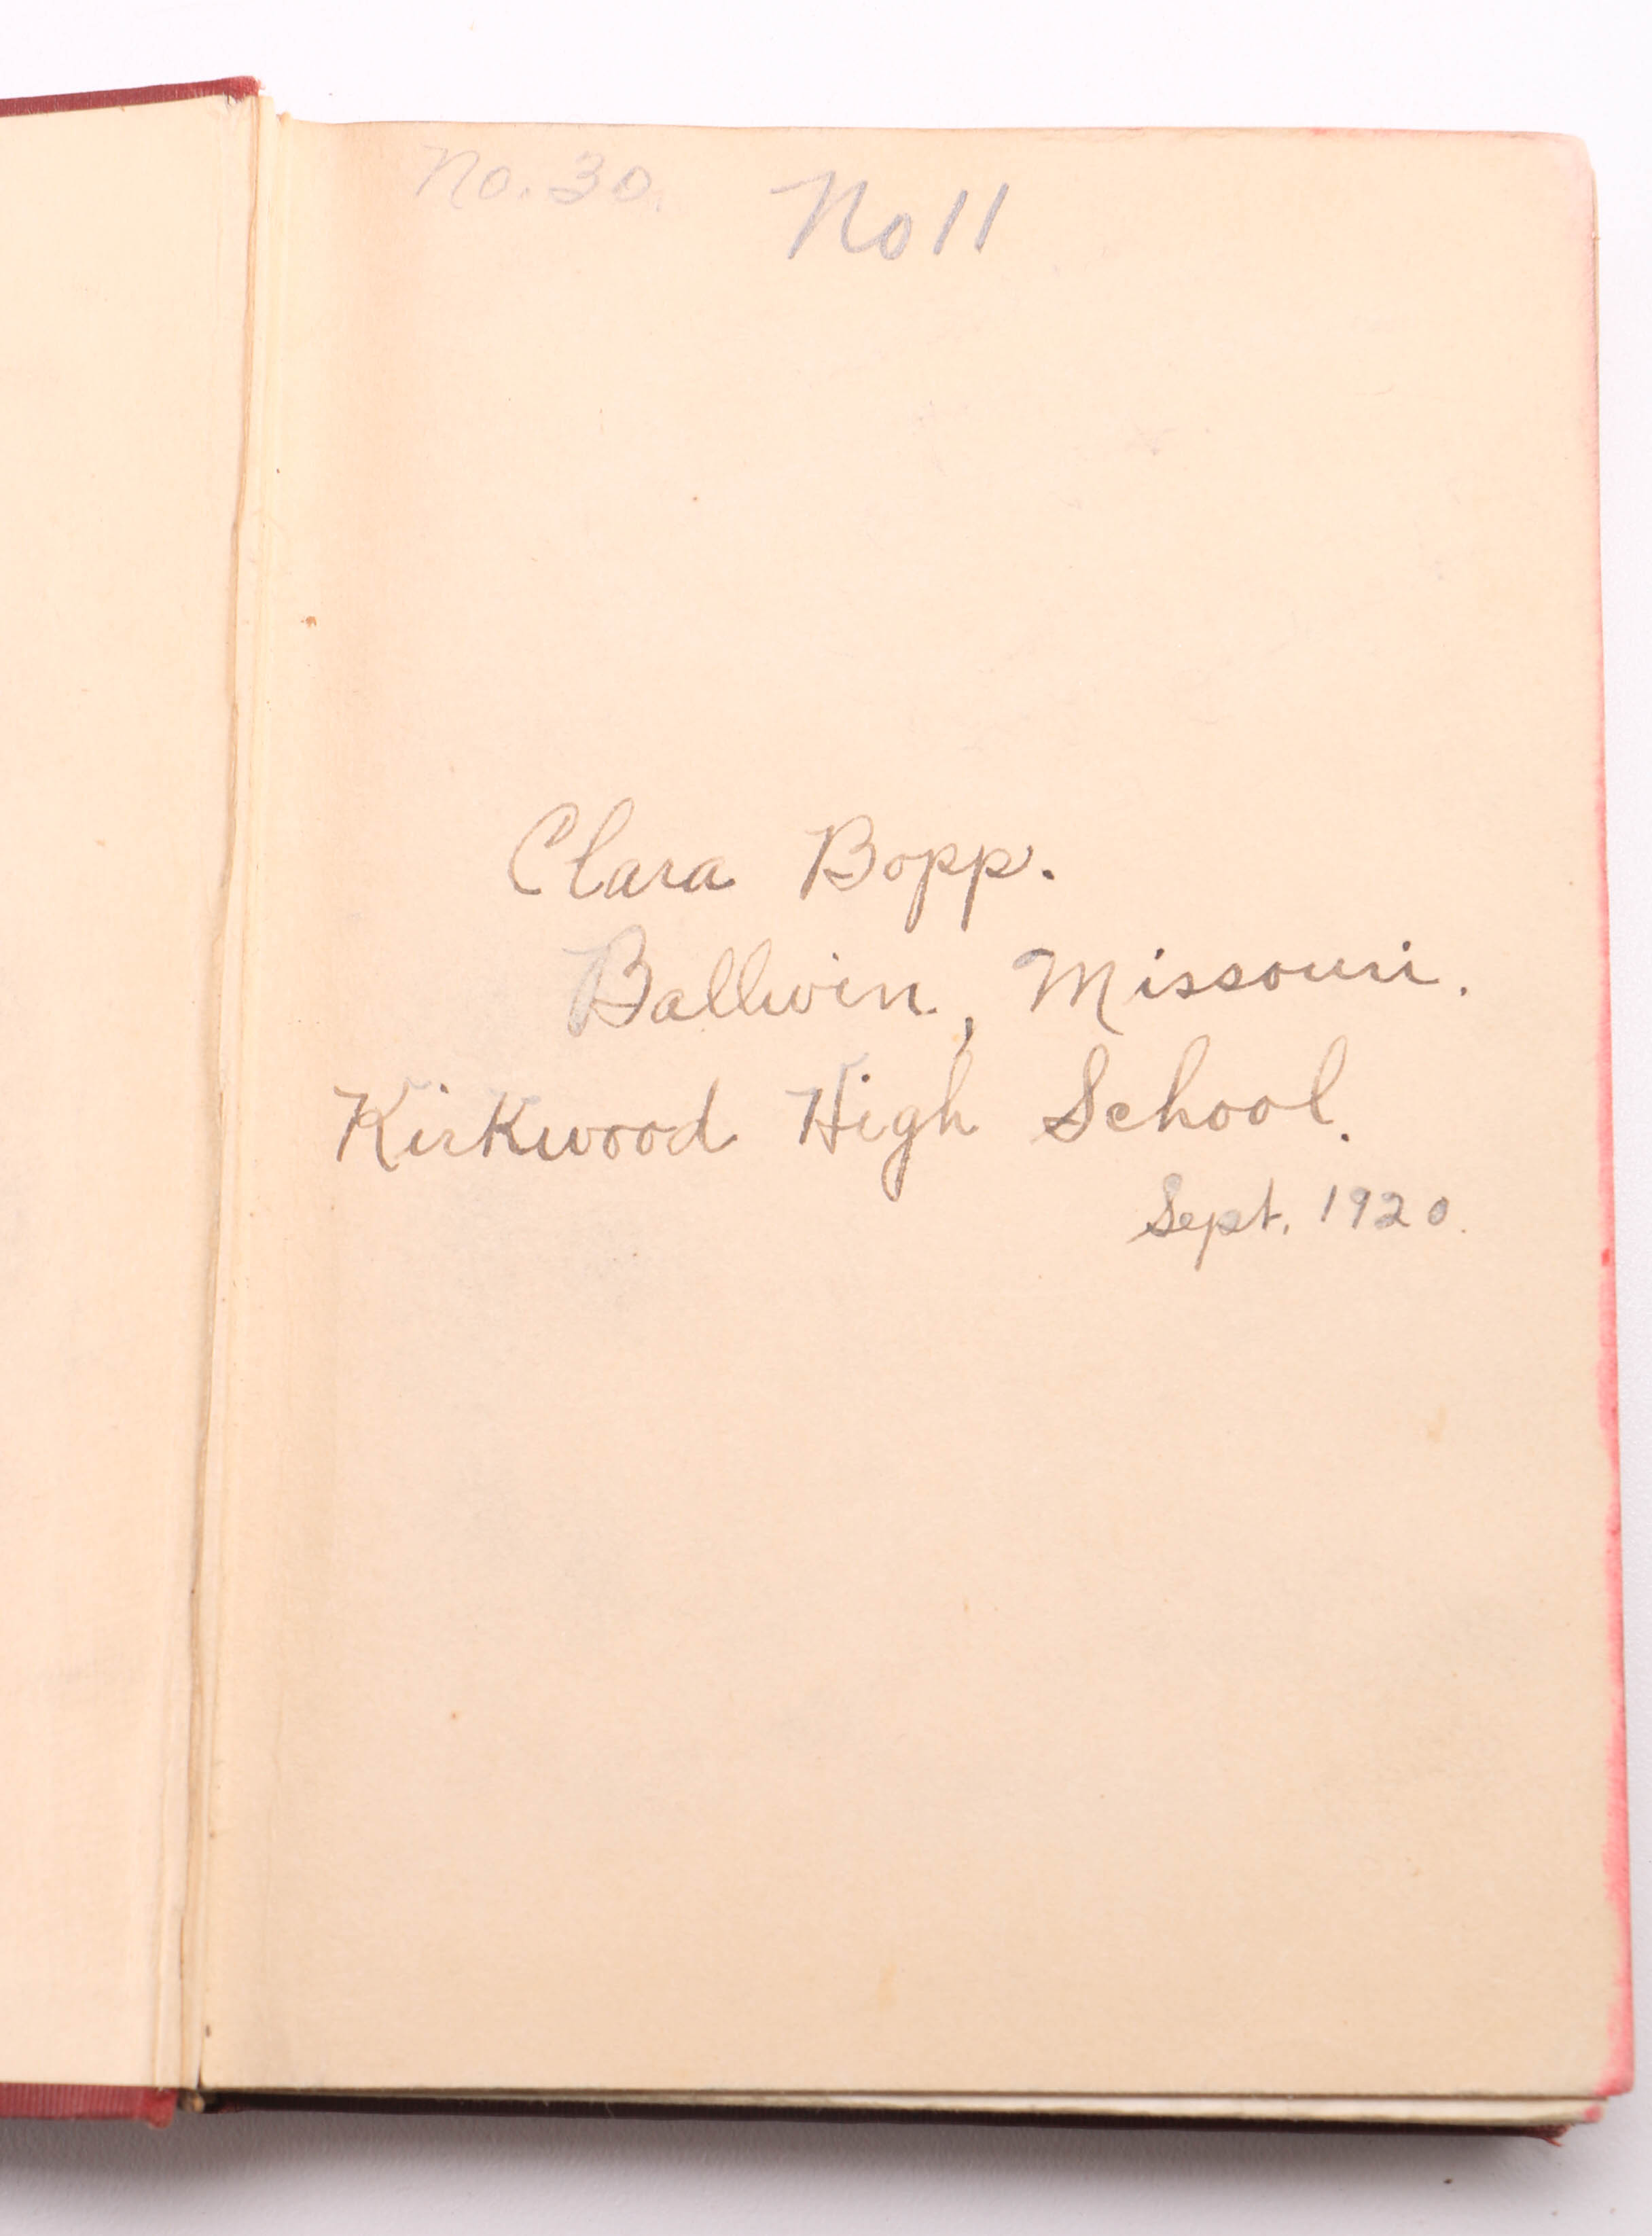 No. 30. No 11
Clara Bopp.
Ballwin, Missouri.
Kirkwood High School.
Sept. 1920.